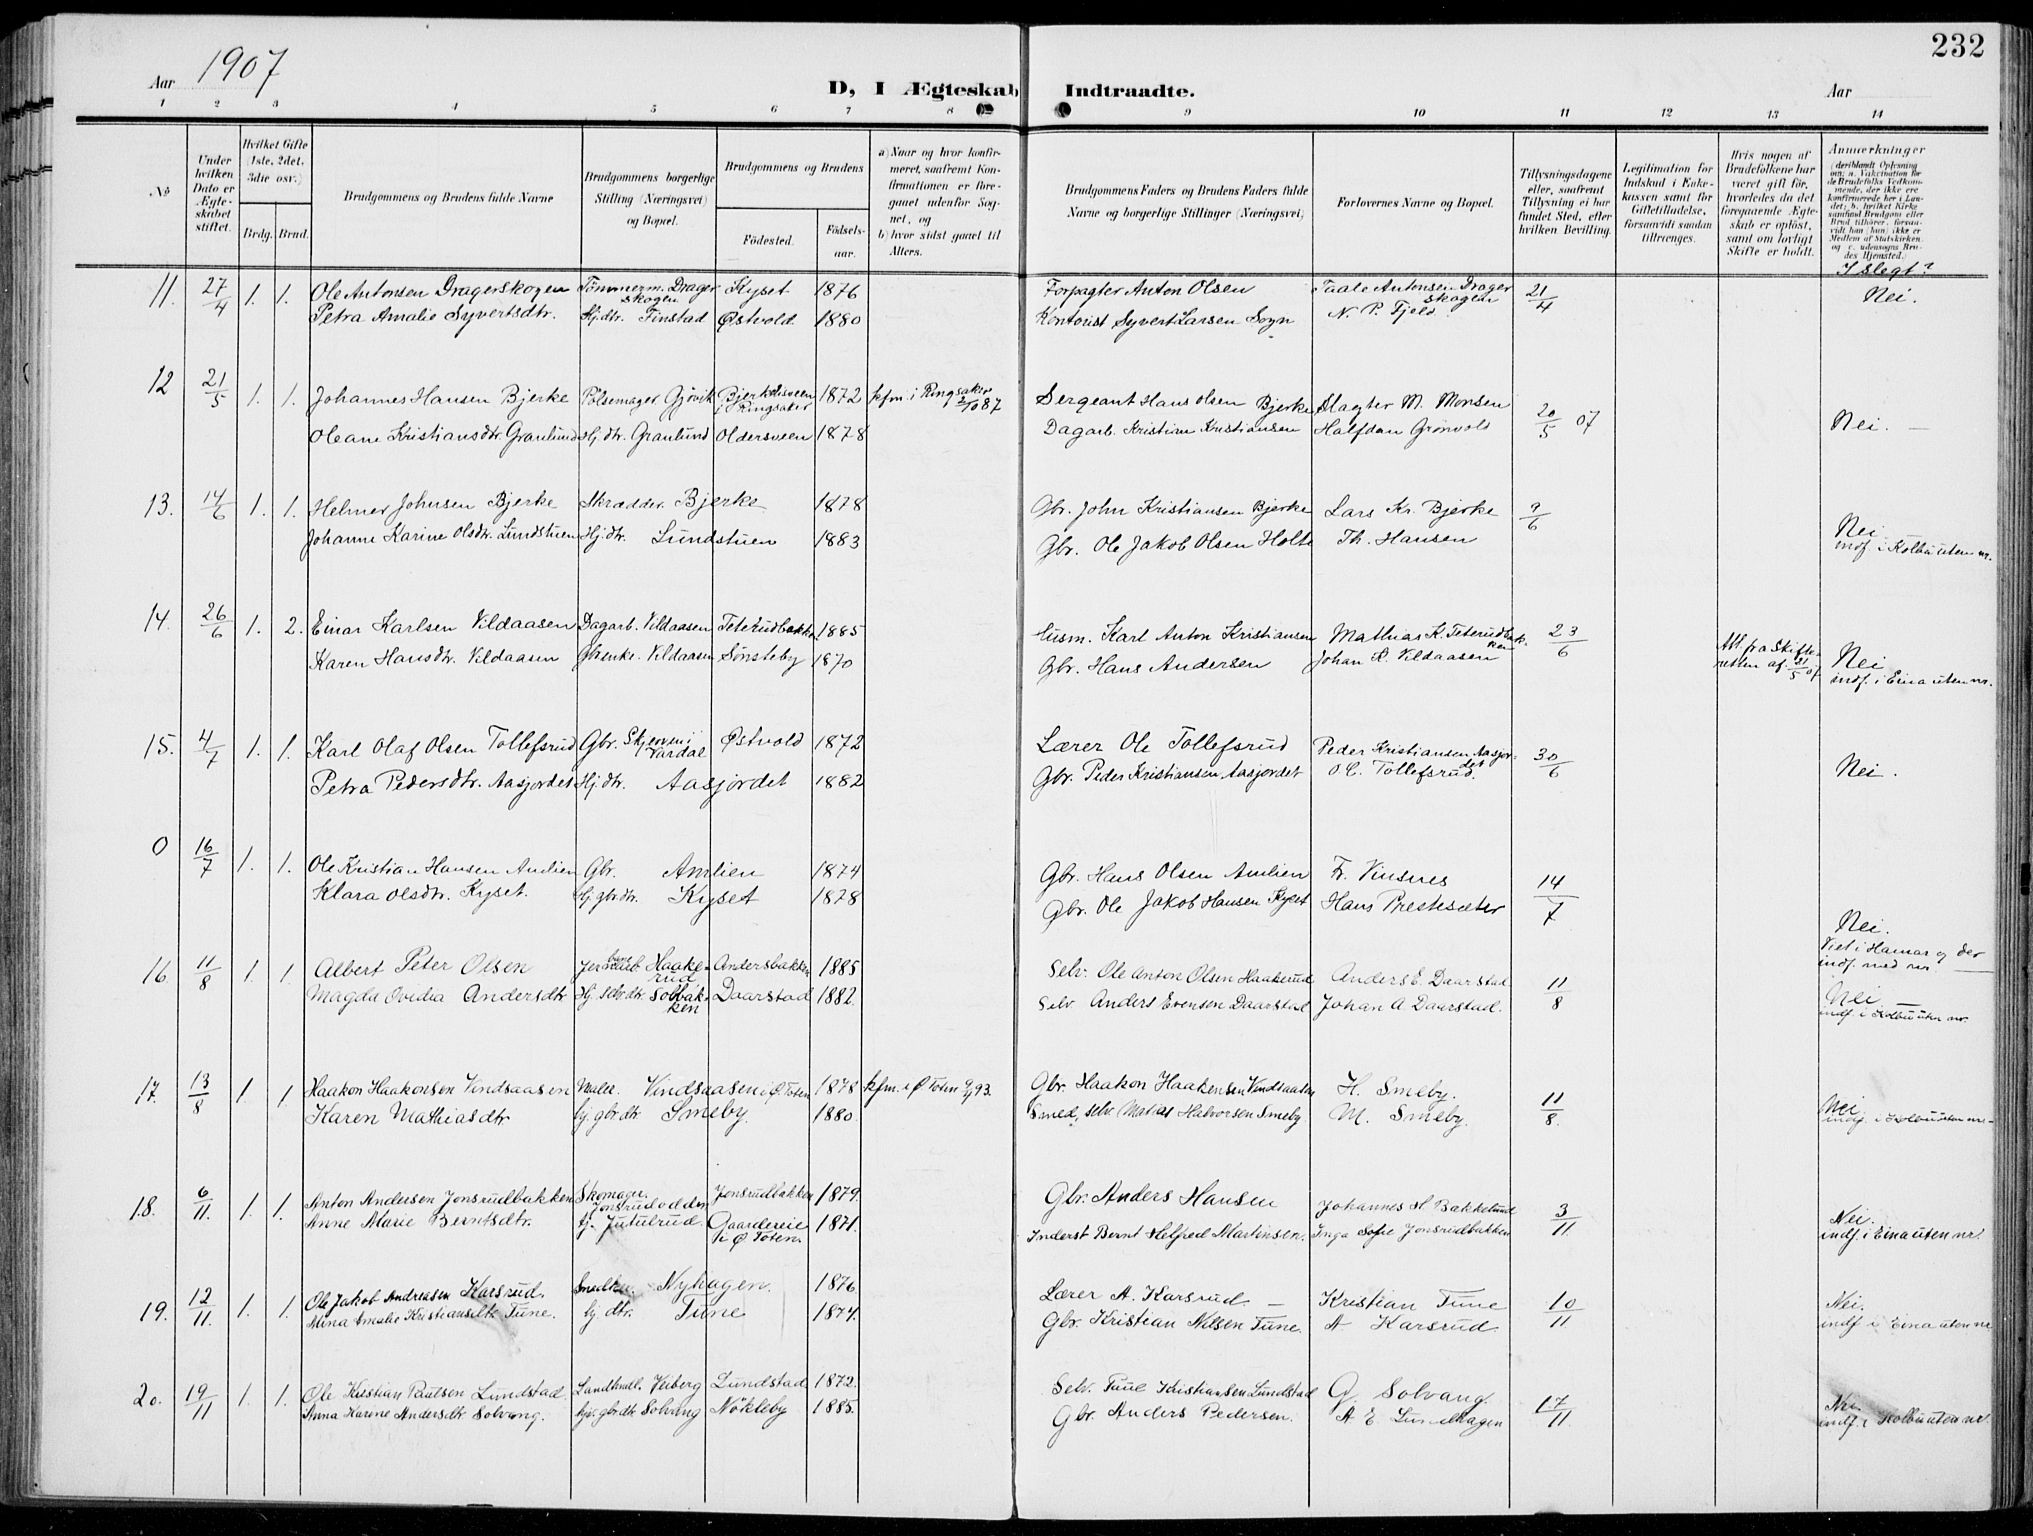 232
Aar 1907
D, I Ægteskab Indtraadte.
Aar
1 2 3 4 5 6 7 8 9 10 11 12 13 14
No
Under hvilken Dato er Ægteskabet stiftet.
Hvilket Gifte (1ste, 2det, 3die osv.)
Brdg. Brud.
Brudgommens og Brudens fulde Navne
Brudgommens borgerlige Stilling (Næringsvei) og Bopæl.
Brudgommens og Brudens
Födested. Födselsaar.
a) Naar og hvor konfirmeret, saafremt Konfirmationen er foregaaet udenfor Sognet, og
b) hvor sidst gaaet til Alters.
Brudgommens Faders og Brudens Faders fulde Navne og borgerlige Stillinger (Næringsvei)
Forlovernes Navne og Bopæl.
Tillysningsdagene eller, saafremt Tillysning ei har fundet Sted, efter hvilken Bevilling.
Legitimation for Indskud i Enkekassen samt for Giftetilladelse, forsaavidt saadan tiltrænges.
Hvis nogen af Brudefolkene har været gift för, hvorledes da det foregaaende Ægteskab er oplöst, samt om lovligt Skifte er holdt.
Anmærkninger
(deriblandt Oplysning om: a. Vakcination for de Brudefolks Vedkommende, der ikke ere konfirmerede her i Landet; b. hvilket Kirkesamfund Brudgom eller Brud tilhörer, forsaavidt han (hun) ikke er Medlem af Statskirken og c. udensogns Brudes Hjemsted.)
I slegt?
11. 27/4 1. 1. Ole Antonsen Dragerskogen Tömmerm. Dragerskogen Kyset 1876 Forpagter Anton Olsen Taale Antonsen Dragerskogen 21/4 Nei.
Petra Amalie Syvertsdtr. Hj.dtr. Finstad Østvold 1880 Kontorist Syvert Larsen Sogn N. P. Fjeld
12 21/5 1. 1. Johannes Hansen Bjerke Pölsemager Gjövik i Ringsaker 1872 kfm. i Ringsaker 2/10 87 Sergeant Hans Olsen Bjerke Slagter M. Monsen 20/5 07 Nei. —
Oleane Kristiansdtr. Granlund Hj.dtr. Granlund Oldersveen 1878 Dagarb. Kristian Kristiansen Halfdan Grönvold
13. 14/6 1. 1. Helmer Johnsen Bjerke Skrædder Bjerke 1878 Gbr. John Kristiansen Bjerke Lars Kr. Bjerke 9/6
Johanne Karine Olsdtr. Lundstuen Hj.dtr. Lundstuen 1883 Gbr. Ole Jakob Olsen Holte Th. Hansen Nei indf. i Kolbu uten nr.
14. 26/6 1. 2. Einar Karlsen Vildaasen Dagarb. Vildaasen Teterudbakken 1885 Husm. Karl Anton Kristiansen Mathias K. Teterudbakken 23/6 Att. fra Skifteretten af 21/5 07
Karen Hansdtr. Vildaasen Gbrenke. Vildaasen Sönsteby 1870 Gbr. Hans Andersen Johan K. Vildaasen Nei indf. i Eina uten nr.
15. 4/7 1. 1. Karl Olaf Olsen Tollefsrud Gbr. Skjerven i Vardal Østvold 1872 Lærer Ole Tollefsrud Peder Kristiansen Aasjordet 30/6
Petra Pedersdtr. Aasjordet Hj.dtr. Aasjordet 1882 Gbr. Peder Kristiansen Aasjordet O. C. Tollefsrud. Nei.
0 16/7 1. 1. Ole Kristian Hansen Amlien Gbr. Amlien 1874 Gbr. Hans Olsen Amlien Fr. Vinsnes 14/7
Klara Olsdtr. Kyset. Hj. gbr.dtr. Kyset 1878 Gbr. Ole Jakob Hansen Kyset Hans Prestesæter Nei. Viet i Hamar og der indf. med nr —
16 11/8 1. 1. Albert Peter Olsen Haakerud Andersbakken 1885 Selv. Ole Anton Olsen Haakerud Anders E. Daarstad 11/8
Magda Ovidia Andersdtr Hj. selv.dtr. Solbakken Daarstad 1882. Selv. Anders Evensen Daarstad Johan A Daarstad. Nei — indf. i Kolbu uten nr.
17. 13/8 1 1 Haakon Haakonsen Vindsaasen Maler. Vindsaasen i Ø. Toten 1878 kfm. i Ø Toten 93. Gbr. Haakon Haakensen Vindsaasen H. Smeby. 11/8.
Karen Mathiasdtr hj. gbr.dtr Smeby. 1880. Smed, selv. Matias Halvorsen Smeby M. Smeby. Nei indf. i Kolbu uten nr.
18. 6/11. 1. 1. Anton Andersen Jonsrudbakken Skomager. Jonsrudodden Jonsrudbakken 1879. Gbr. Anders Hansen Johannes H Bakkelund 3/11.
Anne Marie Berntsdtr. hj. Jutulrud Gaardereie i Ø Toten. 1871. Inderst Bernt Helfred Martinsen. Inga Sofie Jonsrudbakken Nei. indf. i Eina uten nr.
19. 12/11. 1. 1. Ole Jakob Andreasen Karsrud. Nyhagen. 1876. Lærer A. Karsrud. — Kristian Tune 10/11 Nei.
Mina Emalie Kristiansdtr Tune. hj dtr. Tune 1874. Gbr. Kristian Nilsen Tune. A Karsrud indf i Eina uten nr
20. 19/11 1. 1. Ole Kristian Paulsen Lundstad Landhndl. Veiberg Lundstad 1872. Selv. Kristiansen Lundstad G. Solvang. 17/11.
Anna Karine Andersdtr Solvang. hj. gbr.dtr Solvang Nökleby 1885. Gbr. Anders Pedersen. A. E Lundhagen Nei. indf. i Kolbu uten nr